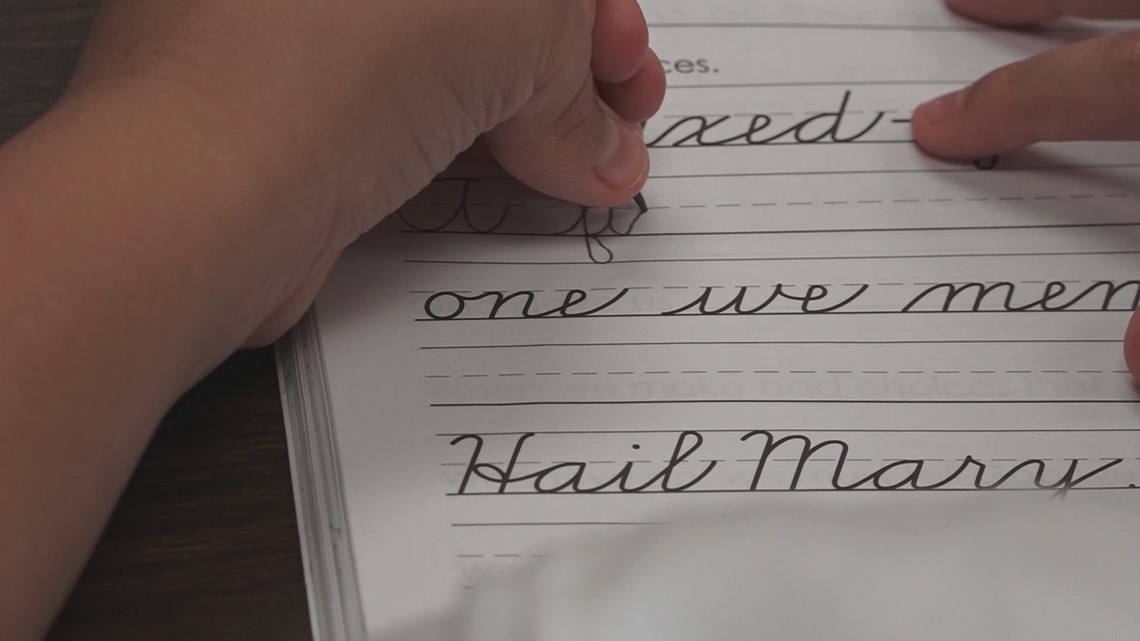 ces.
xed-
A fi
one we men
When we make bad choices that
Hail Mary.